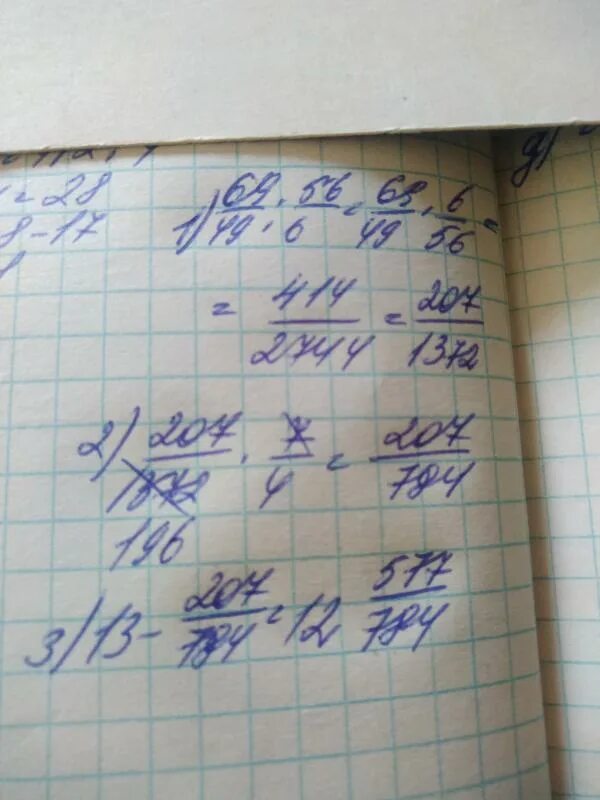 = 28
8 - 17
1) 69/49 : 56/6 = 69/49 · 6/56 =
= 414/2744 = 207/1372
2) 207/1372 · 7/4 = 207/784
196
3) 13 - 207/784 = 12 577/784